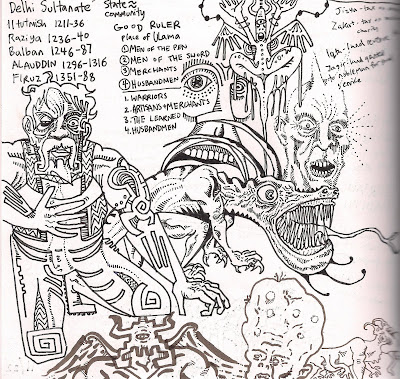 Delhi Sultanate
Iltutmish 1211-36
Raziya 1236-40
Balban 1246-87
ALAUDDIN 1296-1316
FIRUZ 1351-88
State ≈
community
GOOD RULER
Place of Ulama
① MEN OF THE PEN
② MEN OF THE SWORD
③ MERCHANTS
④ HUSBANDMEN
1. WARRIORS
2. ARTISANS + MERCHANTS
3. THE LEARNED
4. HUSBANDMEN
Jizya - tax on
Zakat - tax on
charity
Iqta - land
Jagir - land
to nobleman for